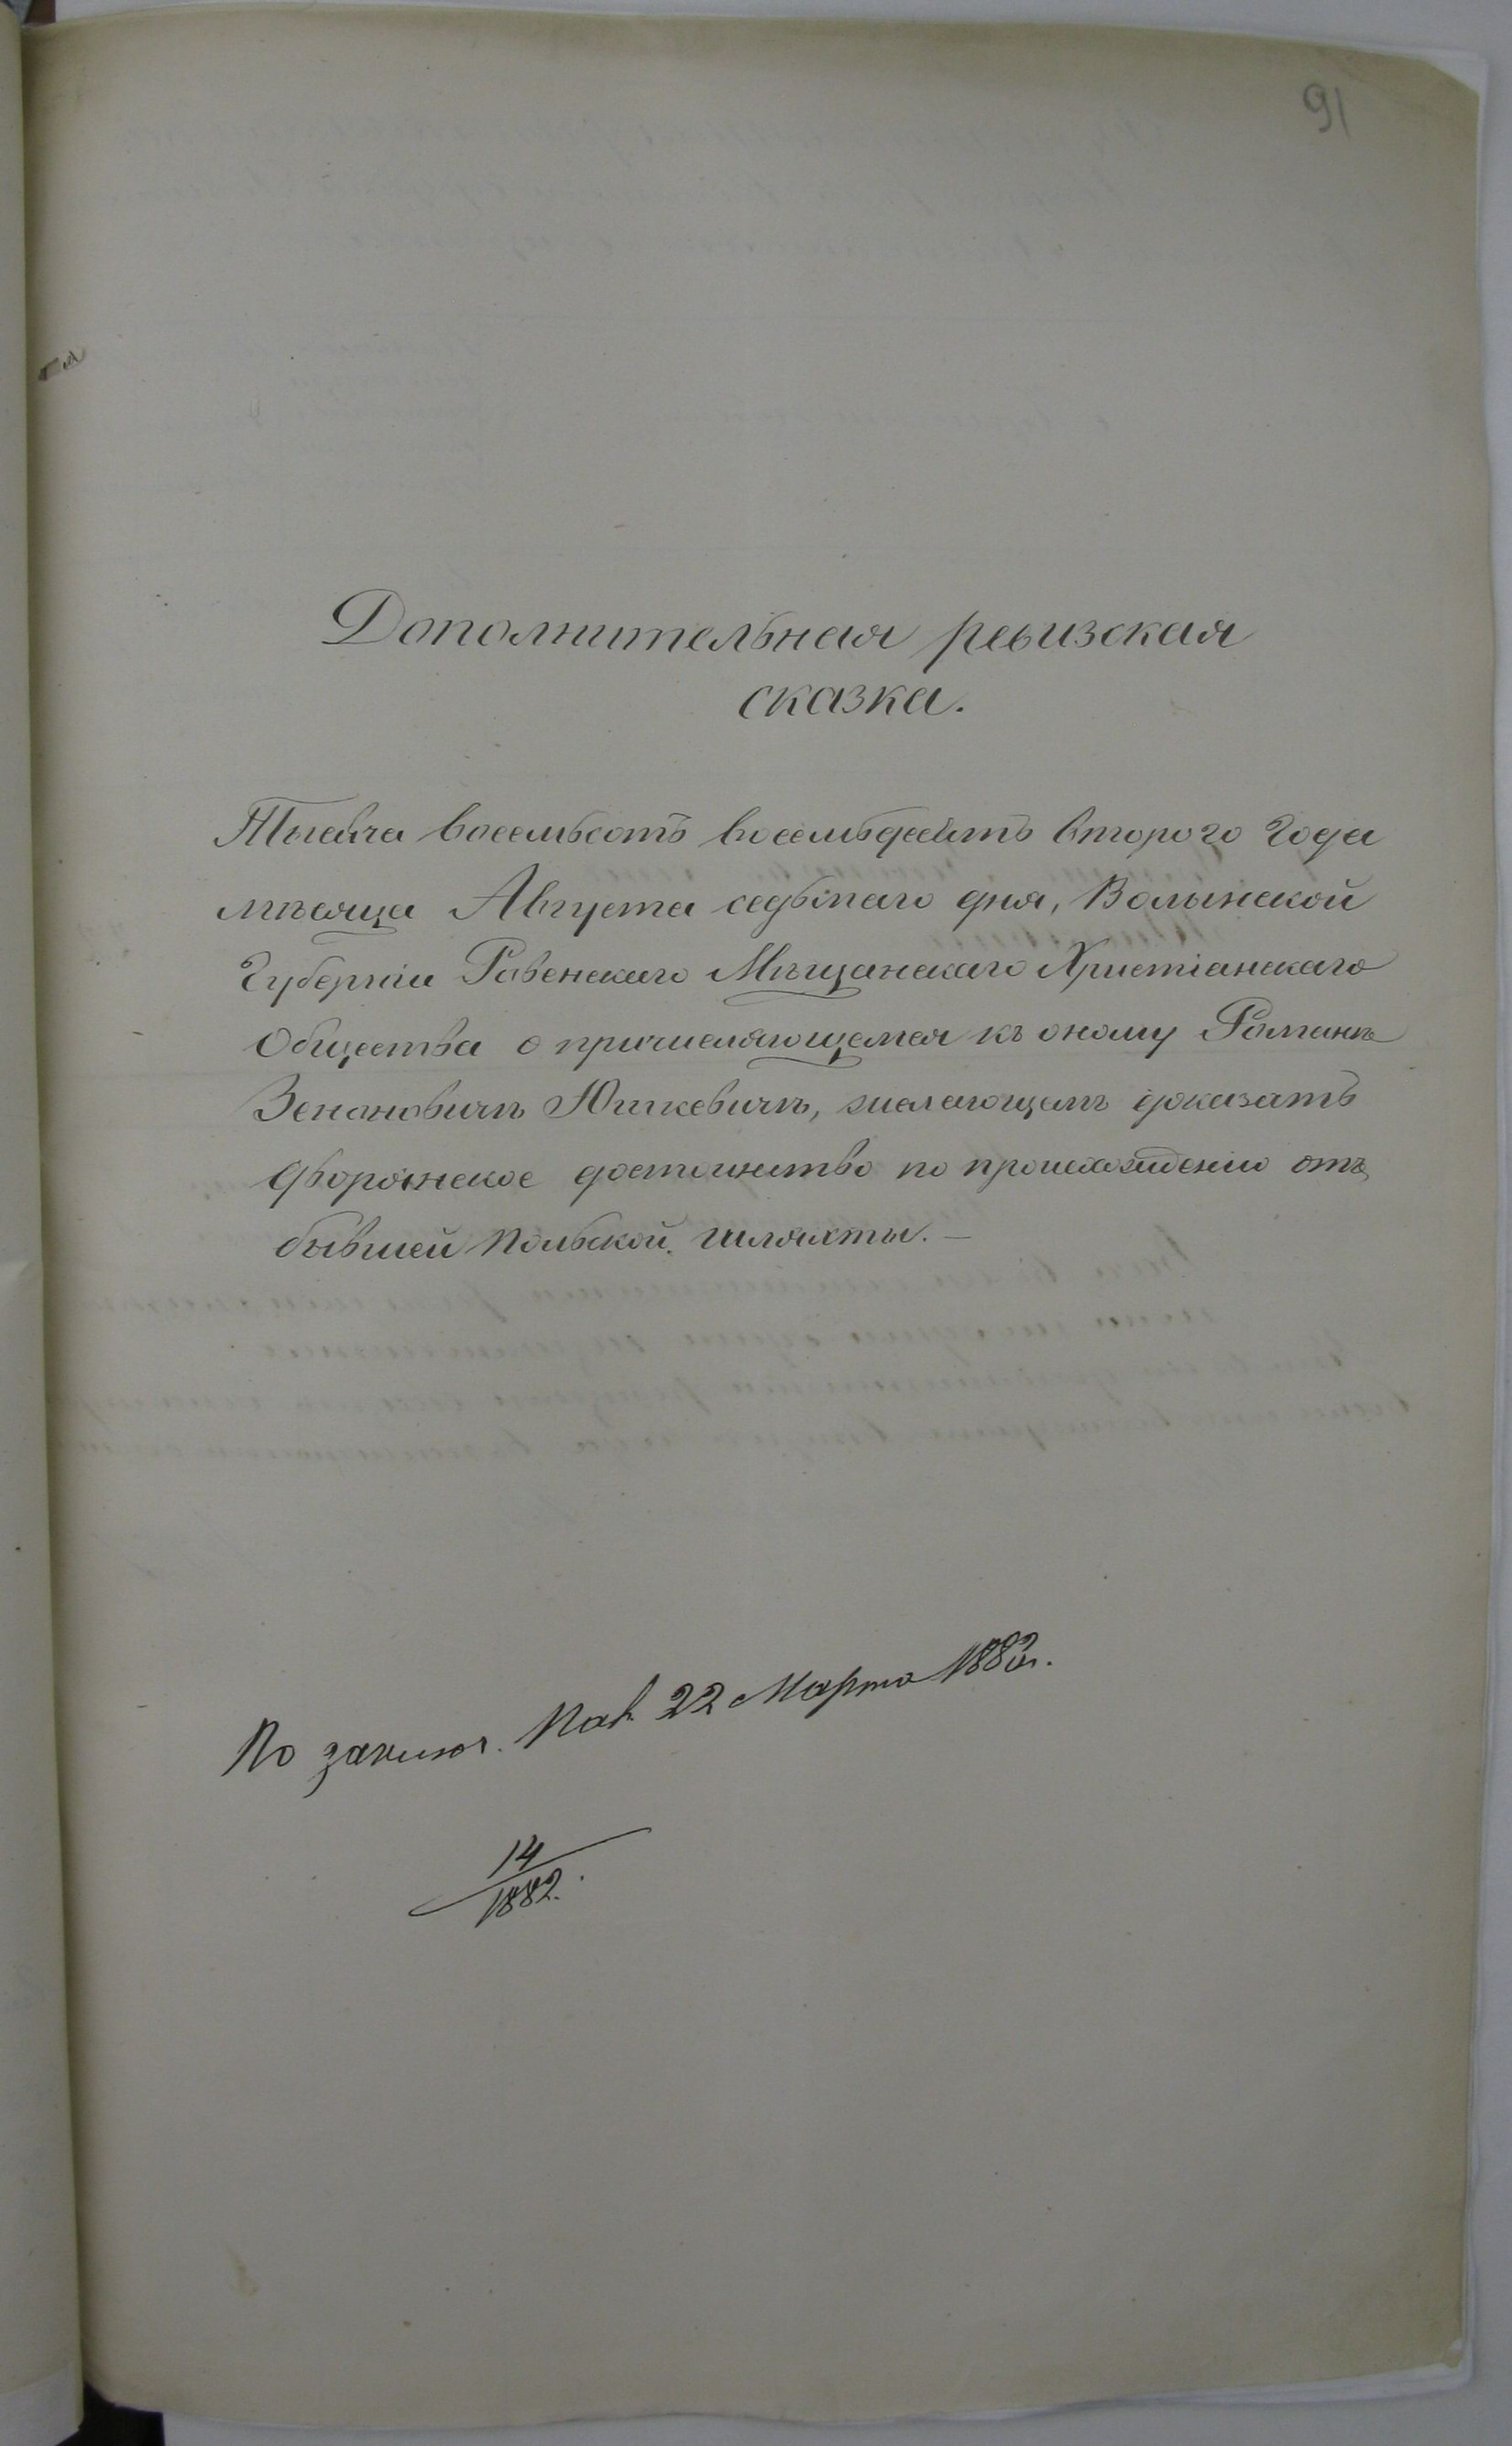 91
Дополнительная ревизская
сказка.
Тысяча восемьсотъ восемьдесятъ второго года
мѣсяца Августа седьмаго дня, Волынской
Губерніи Ровенскаго Мѣщанскаго Христіанскаго
Общества о причисляющемся къ оному Романѣ
Зенановичѣ Юшкевичѣ, желающемъ доказать
дворянское достоинство по происхожденію отъ
бывшей польской шляхты. —
По заключ. Пал. 22 Марта 1883г.
14
1882.